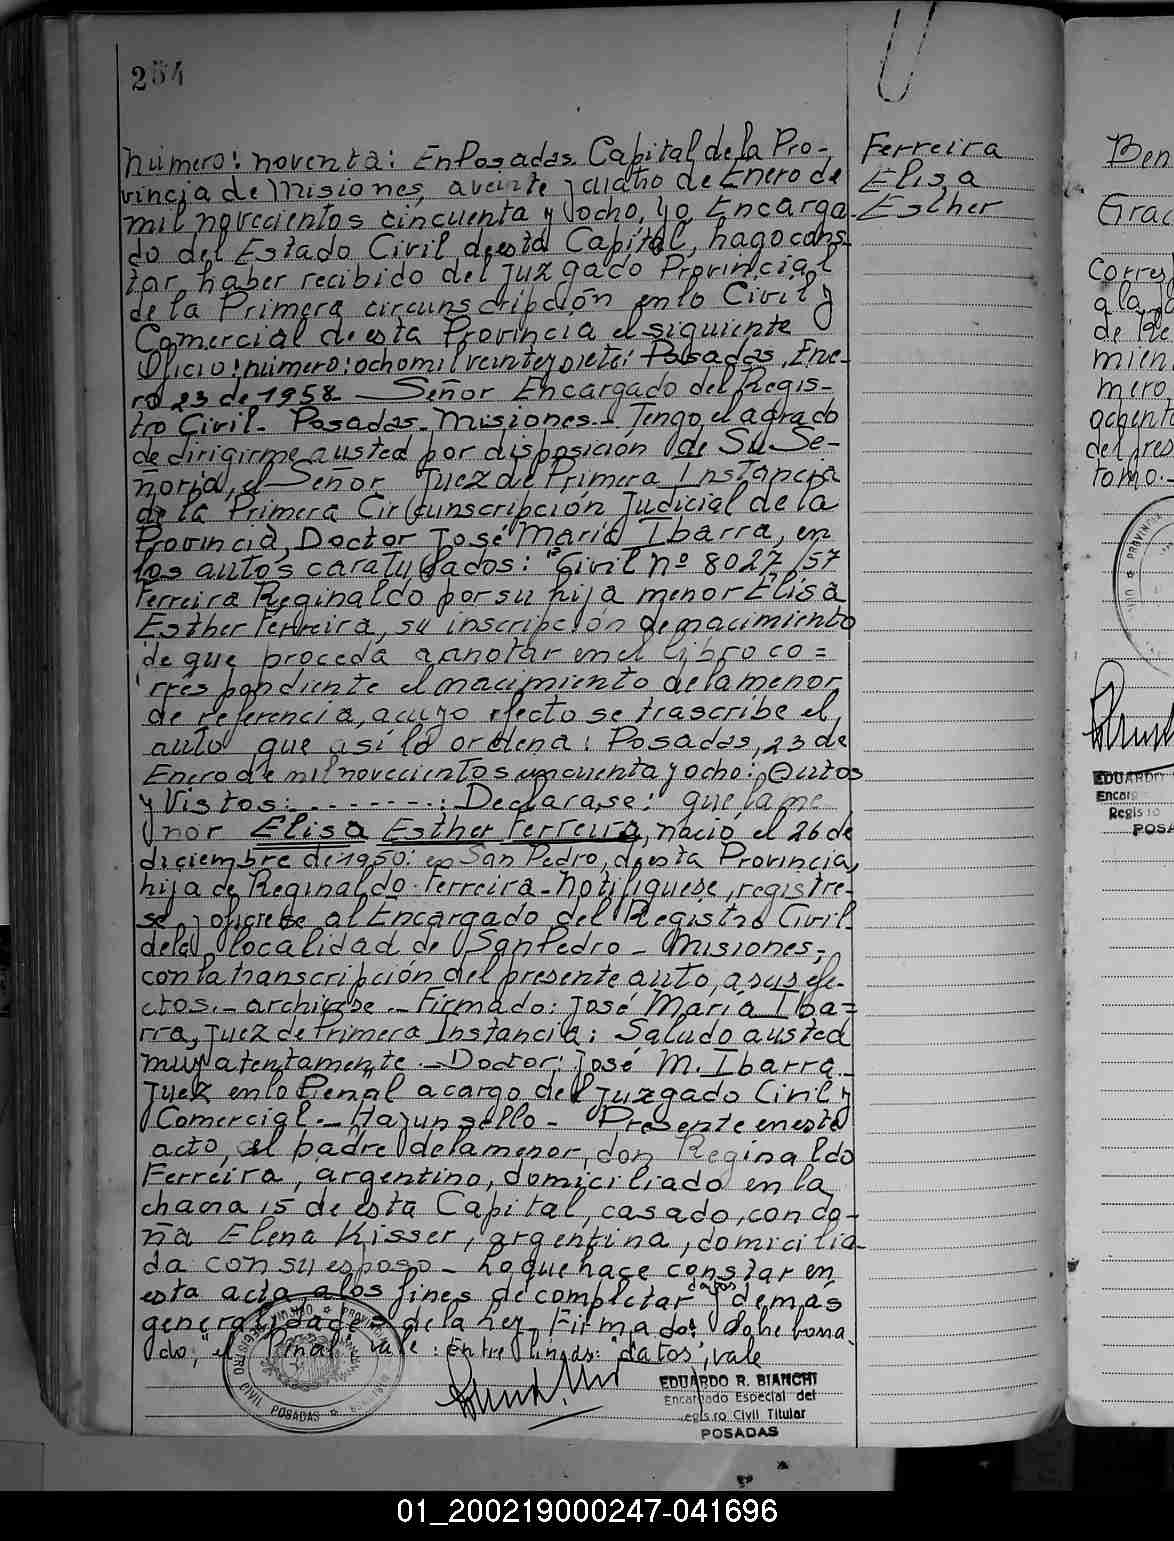 254
número: noventa: En Posadas Capital de la Pro-
vincia de Misiones, a veinte y cuatro de Enero de
mil novecientos cincuenta y ocho, yo Encarga-
do del Estado Civil de esta Capital, hago cons-
tar haber recibido del Juzgado Provincial
de la Primera circunscripción en lo Civil y
Comercial de esta Provincia el siguiente
Oficio: número: ocho mil veinte y siete: Posadas, Ene-
ro 23 de 1958 — Señor Encargado del Regis-
tro Civil - Posadas - Misiones.- Tengo el agrado
de dirigirme a usted por disposición de Su Se-
ñoria, el Señor Juez de Primera Instancia
de la Primera Circunscripción Judicial de la
Provincia, Doctor José Maria Ibarra, en
los autos caratulados: "Civil nº 8027/57
Ferreira Reginaldo por su hija menor Elisa
Esther Ferreira, su inscripción de nacimiento
de que proceda a anotar en el libro co=
rres pondiente el nacimiento de la menor
de referencia, a cuyo efecto se trascribe el
auto que así lo ordena: Posadas, 23 de
Enero de mil novecientos cincuenta y ocho: Autos
y Vistos: - - - - - - - : Declarase: que la me
nor Elisa Esther Ferreira, nació el 26 de
diciembre de 1950: en San Pedro, de esta Provincia,
hija de Reginaldo Ferreira - Notifiquese, registre-
se, y oficiese al Encargado del Registro Civil
de la localidad de San Pedro - Misiones,-
con la transcripción del presente auto, a sus efe-
ctos.- archivese.- Firmado: José María Iba=
rra, Juez de Primera Instancia: Saludo a usted
muy atentamente.- Doctor: José M. Ibarra.-
Juez en lo Penal a cargo del Juzgado Civil y
Comercial.- Hay un sello - Presente en este
acto, el padre de la menor, don Reginaldo
Ferreira, argentino, domiciliado en la
chacra 15 de esta Capital, casado, con do-
ña Elena Kisser, argentina, domicilia-
da con su esposo - Lo que hace constar en
esta acta, a los fines de completar datos y demás
generalidades de la Ley - Firmado:
do, "el Penal", vale: Entre lineas: "datos", vale
REGISTRO CIVIL POSADAS
EDUARDO R. BIANCHI
Encargado Especial del
Registro Civil Titular
POSADAS
Ferreira
Elisa
Esther
Ben
Gra
Corres
a la
de
mien
mero
ochent
del pres
tomo.-
PROVINCIA
EDUARDO
Encarg
Registro
POSA
01_200219000247-041696